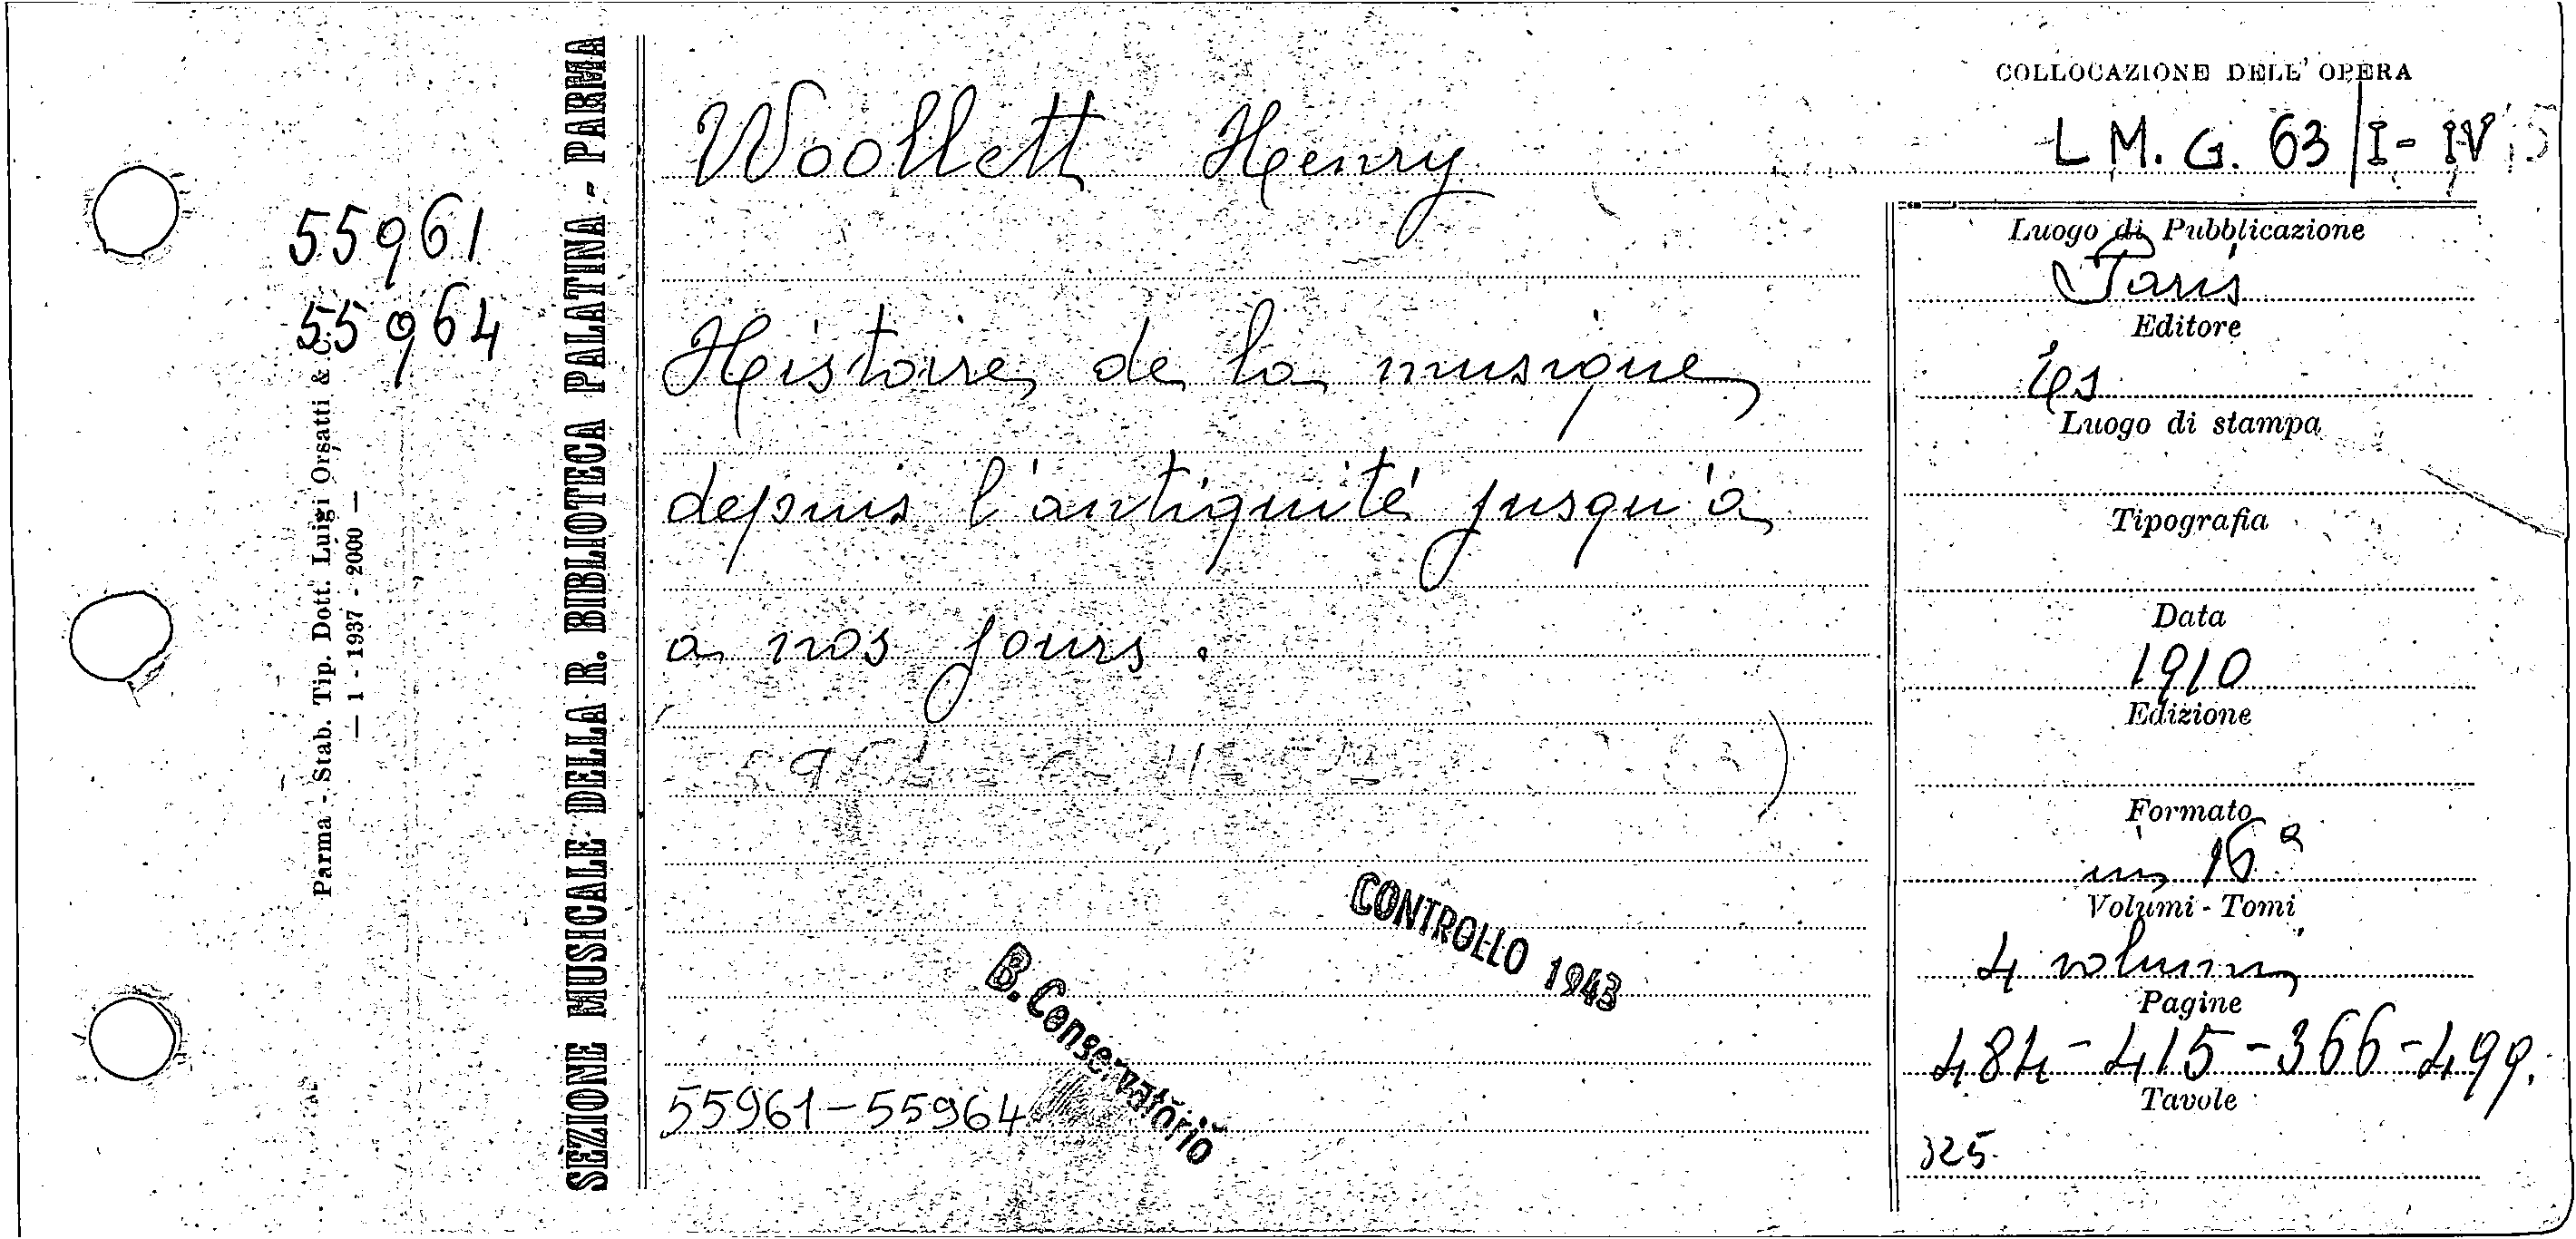 55961
55964
Parma - Stab. Tip. Dott. Luigi Orsatti & C.
— 1 - 1937 - 2000 —
SEZIONE MUSICALE DELLA R. BIBLIOTECA PALATINA - PARMA
Woollett Henry
Histoire de la musique
depuis l'antiquité jusqu'a
a nos jours.
CONTROLLO 1943
B. Conservatorio
55961-55964
COLLOCAZIONE DELL' OPERA
L M. G. 63/I-IV
Luogo di Pubblicazione
Paris
Editore
Luogo di stampa
Tipografia
Data
1910
Edizione
Formato
in 16°
Volumi - Tomi
4 volumi
Pagine
484-415-366-499.
Tavole
325